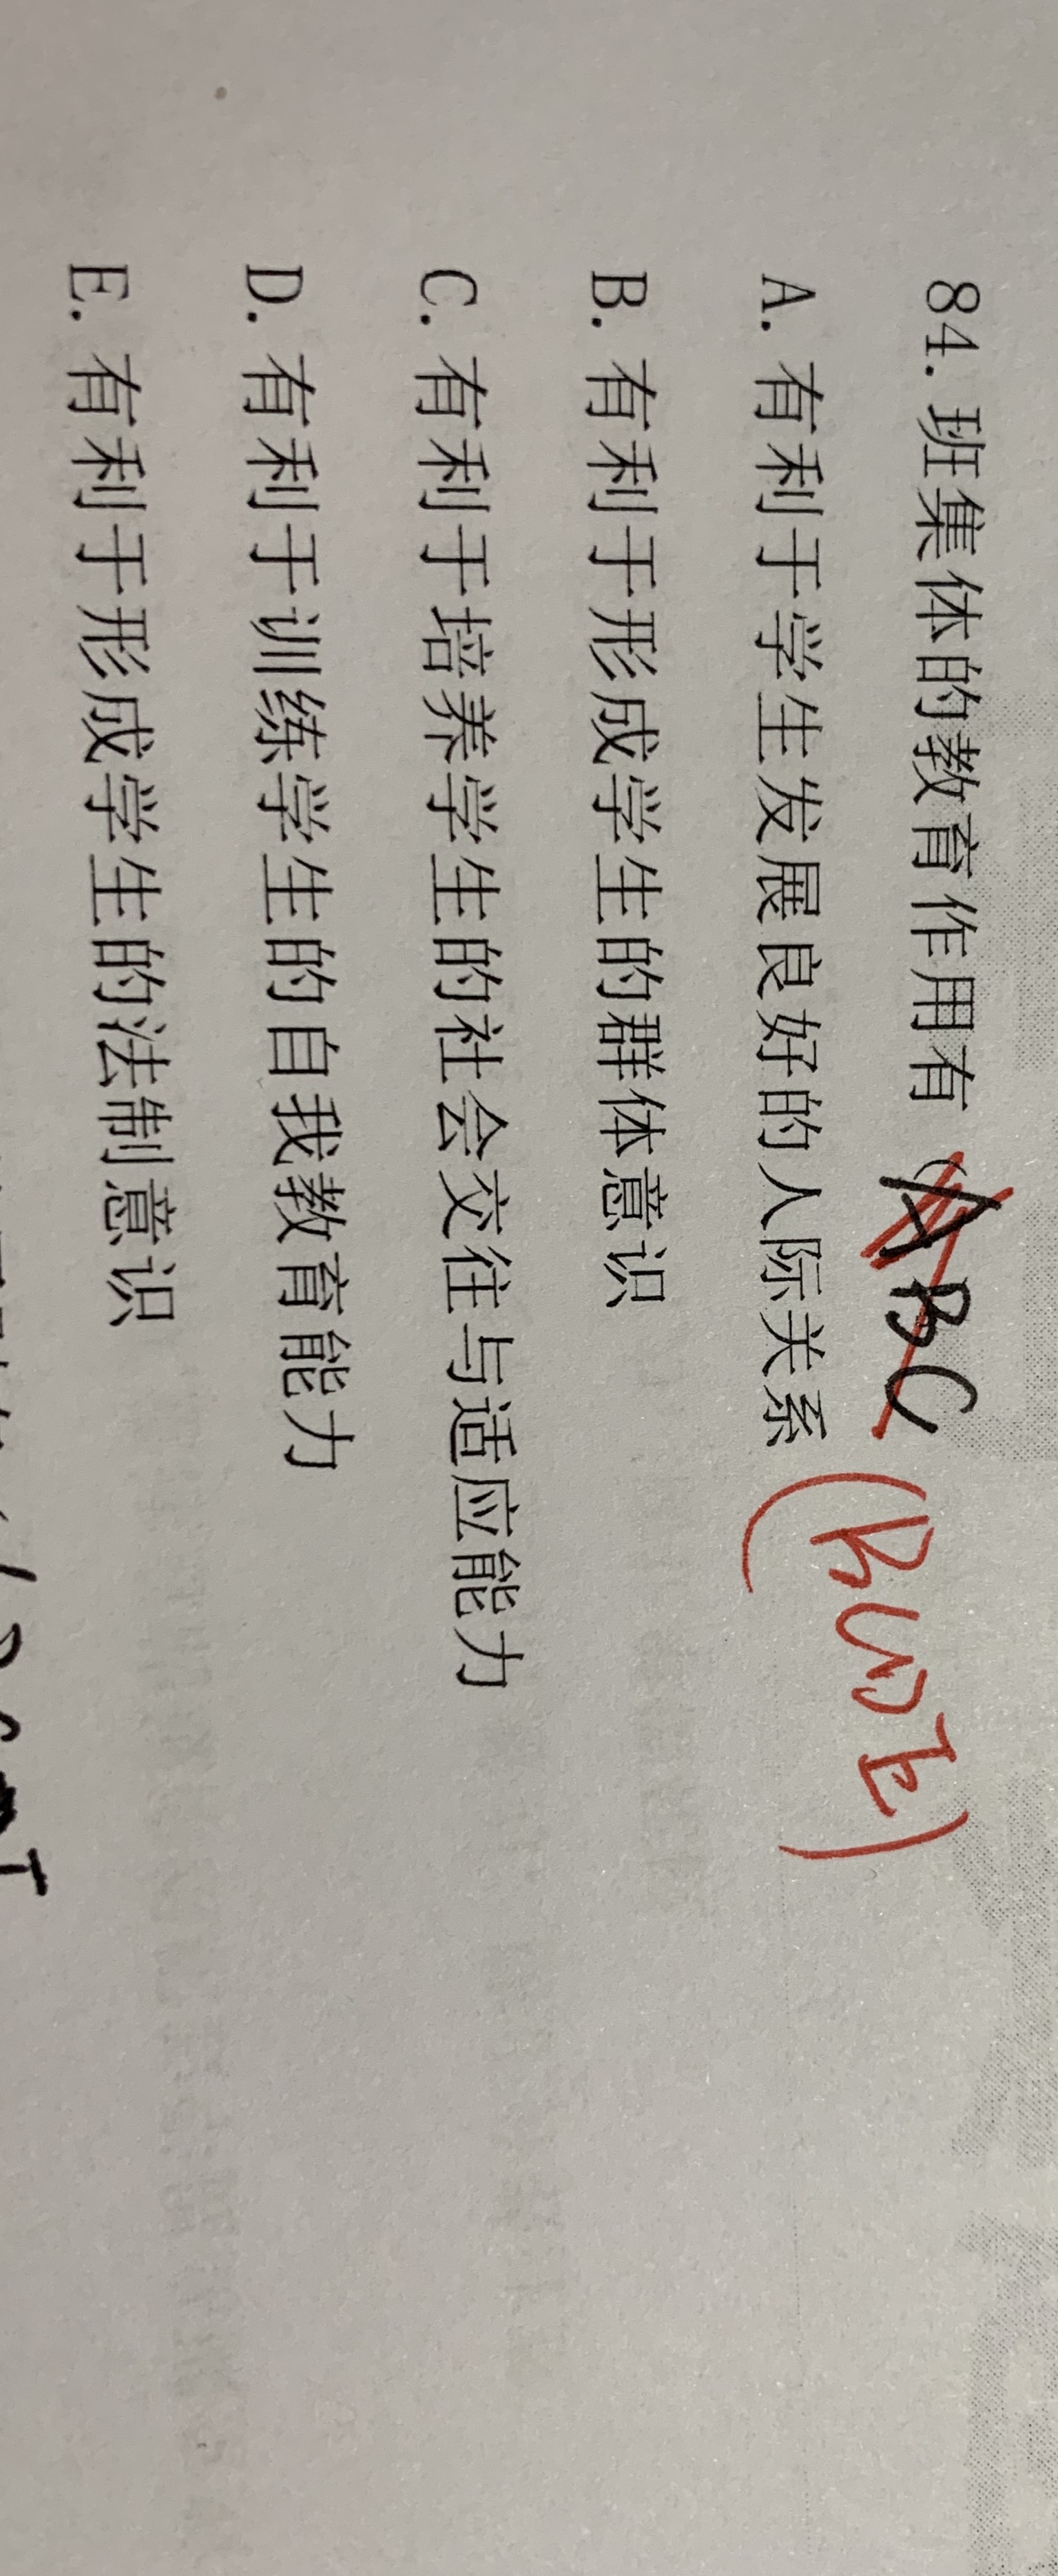 84. 班集体的教育作用有 (ABC (BCDE)
A. 有利于学生发展良好的人际关系
B. 有利于形成学生的群体意识
C. 有利于培养学生的社会交往与适应能力
D. 有利于训练学生的自我教育能力
E. 有利于形成学生的法制意识